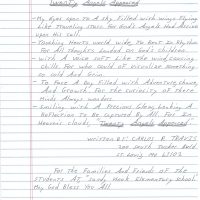 Twenty Angels Appeared
- My Eyes open to A sky filled with wings Flying
like Traveling stars. For God's Angels Had Arisen
upon His call.
- Touching Hearts world wide, To Beat In Rhythm
For All Thoughts landed on God's children.
- With A Voice soft like the wind, causing
chills. For who could of visualize something
so cold And Grim.
- To Face A Day Filled with Adventure, change
And Growth. For the curiosity of there
Minds Always wonders.
- Smiling with A Precious Glow, looking A
Reflection To Be captured By All. For In
Heavens clouds, "Twenty Angels Appeared".
written By: CARLOS R. TRAVIS
St Louis Mo
For the Families And Friends of the
STUDENTS AT "Sandy Hook Elementary School."
May God Bless You All